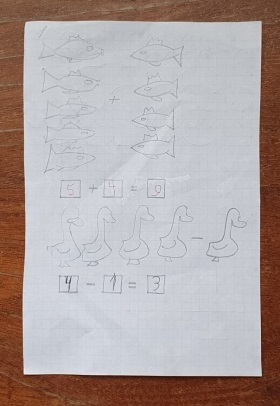 +
5 + 4 = 9
-
4 - 1 = 3